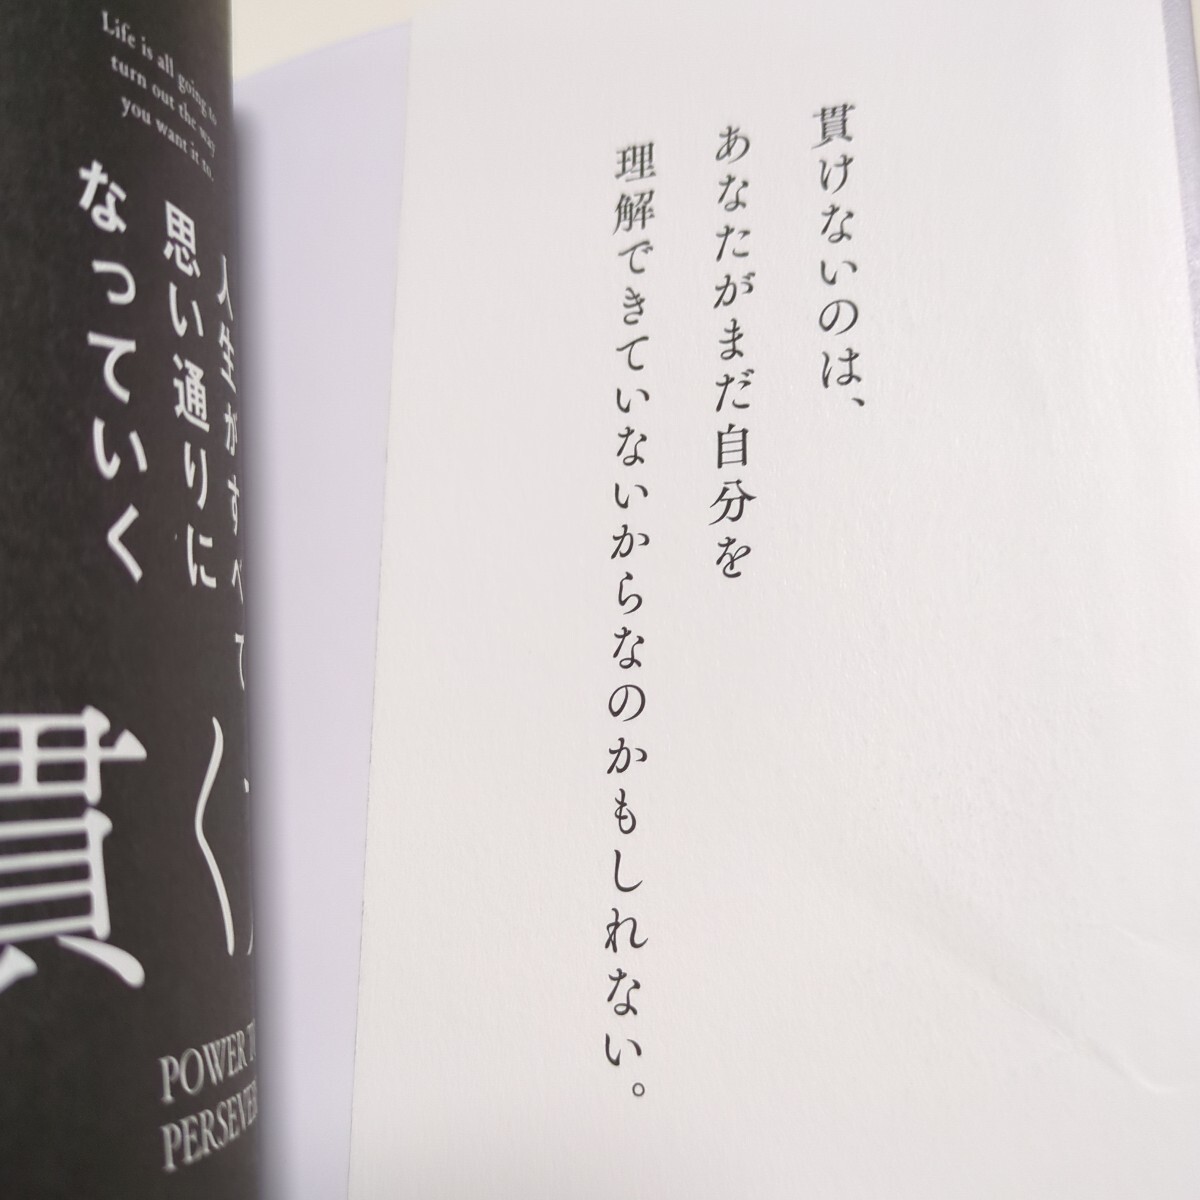 Life is all going to
turn out the way
you want it to.
人生がすべて
思い通りに
なっていく
貫く
POWER TO
PERSEVER
貫けないのは、
あなたがまだ自分を
理解できていないからなのかもしれない。